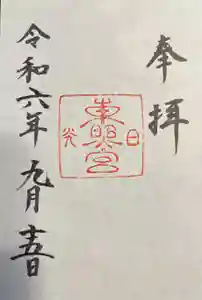 奉拝
日光
東照宮
令和六年九月十五日